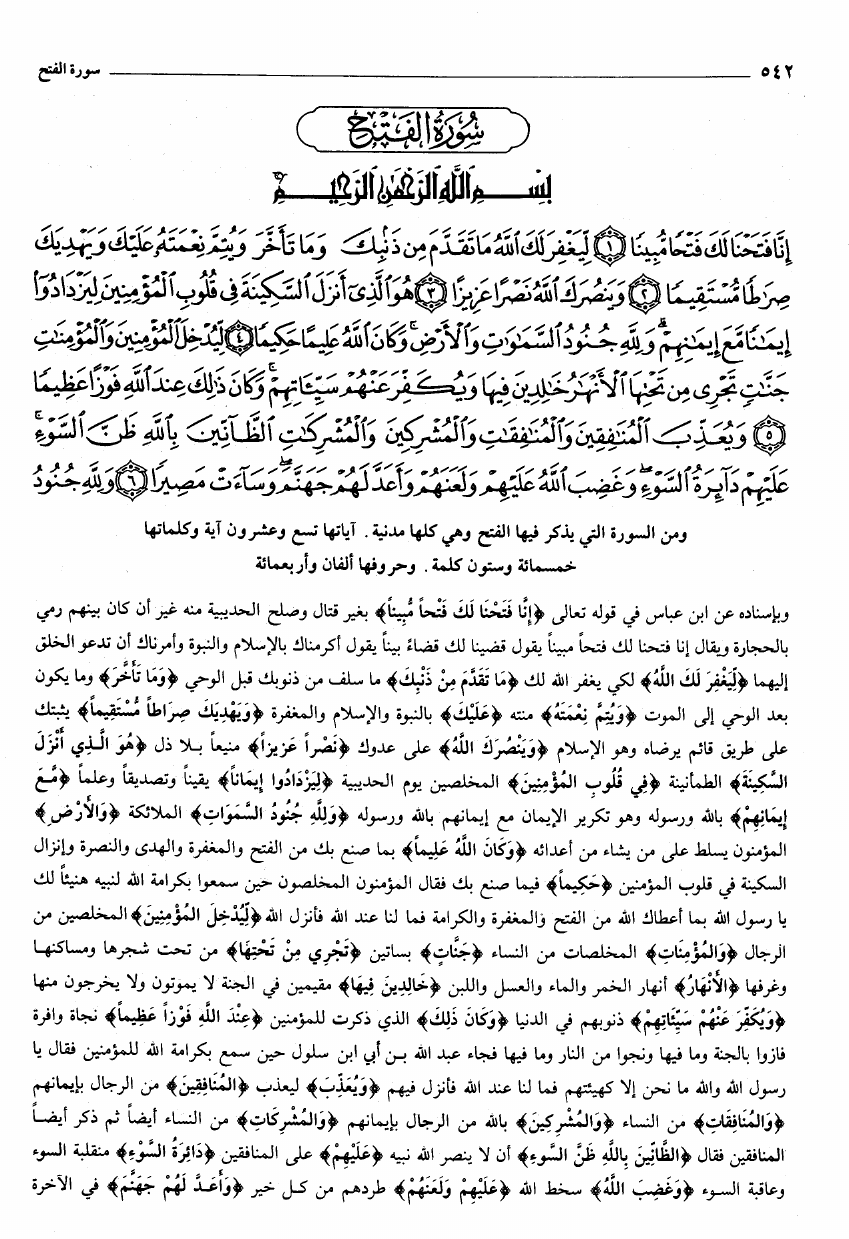 ٥٤٢ سورة الفتح
سُورَةُ الفَتْحِ
بِسْمِ اللَّهِ الرَّحْمَٰنِ الرَّحِيمِ
إِنَّا فَتَحْنَا لَكَ فَتْحًا مُّبِينًا ﴿١﴾ لِّيَغْفِرَ لَكَ ٱللَّهُ مَا تَقَدَّمَ مِن ذَنۢبِكَ وَمَا تَأَخَّرَ وَيُتِمَّ نِعْمَتَهُۥ عَلَيْكَ وَيَهْدِيَكَ
صِرَٰطًا مُّسْتَقِيمًا ﴿٢﴾ وَيَنصُرَكَ ٱللَّهُ نَصْرًا عَزِيزًا ﴿٣﴾ هُوَ ٱلَّذِىٓ أَنزَلَ ٱلسَّكِينَةَ فِى قُلُوبِ ٱلْمُؤْمِنِينَ لِيَزْدَادُوٓا۟
إِيمَٰنًا مَّعَ إِيمَٰنِهِمْ ۗ وَلِلَّهِ جُنُودُ ٱلسَّمَٰوَٰتِ وَٱلْأَرْضِ ۚ وَكَانَ ٱللَّهُ عَلِيمًا حَكِيمًا ﴿٤﴾ لِّيُدْخِلَ ٱلْمُؤْمِنِينَ وَٱلْمُؤْمِنَٰتِ
جَنَّٰتٍ تَجْرِى مِن تَحْتِهَا ٱلْأَنْهَٰرُ خَٰلِدِينَ فِيهَا وَيُكَفِّرَ عَنْهُمْ سَيِّـَٔاتِهِمْ ۚ وَكَانَ ذَٰلِكَ عِندَ ٱللَّهِ فَوْزًا عَظِيمًا
﴿٥﴾ وَيُعَذِّبَ ٱلْمُنَٰفِقِينَ وَٱلْمُنَٰفِقَٰتِ وَٱلْمُشْرِكِينَ وَٱلْمُشْرِكَٰتِ ٱلظَّآنِّينَ بِٱللَّهِ ظَنَّ ٱلسَّوْءِ ۚ
عَلَيْهِمْ دَآئِرَةُ ٱلسَّوْءِ ۖ وَغَضِبَ ٱللَّهُ عَلَيْهِمْ وَلَعَنَهُمْ وَأَعَدَّ لَهُمْ جَهَنَّمَ ۖ وَسَآءَتْ مَصِيرًا ﴿٦﴾ وَلِلَّهِ جُنُودُ
ومن السورة التي يذكر فيها الفتح وهي كلها مدنية. آياتها تسع وعشرون آية وكلماتها
خمسمائة وستون كلمة. وحروفها ألفان وأربعمائة
وبإسناده عن ابن عباس في قوله تعالى ﴿إِنَّا فَتَحْنَا لَكَ فَتْحاً مُّبِيناً﴾ بغير قتال وصلح الحديبية منه غير أن كان بينهم رمي
بالحجارة ويقال إنا فتحنا لك فتحاً مبيناً يقول قضينا لك قضاءً بيناً يقول أكرمناك بالإسلام والنبوة وأمرناك أن تدعو الخلق
إليهما ﴿لِّيَغْفِرَ لَكَ اللَّهُ﴾ لكي يغفر الله لك ﴿مَا تَقَدَّمَ مِنْ ذَنْبِكَ﴾ ما سلف من ذنوبك قبل الوحي ﴿وَمَا تَأَخَّرَ﴾ وما يكون
بعد الوحي إلى الموت ﴿وَيُتِمَّ نِعْمَتَهُ﴾ منته ﴿عَلَيْكَ﴾ بالنبوة والإسلام والمغفرة ﴿وَيَهْدِيَكَ صِرَاطاً مُّسْتَقِيماً﴾ يثبتك
على طريق قائم يرضاه وهو الإسلام ﴿وَيَنْصُرَكَ اللَّهُ﴾ على عدوك ﴿نَصْراً عَزِيزاً﴾ منيعاً بلا ذل ﴿هُوَ الَّذِي أَنْزَلَ
السَّكِينَةَ﴾ الطمأنينة ﴿فِي قُلُوبِ المُؤْمِنِينَ﴾ المخلصين يوم الحديبية ﴿لِيَزْدَادُوا إِيمَاناً﴾ يقيناً وتصديقاً وعلماً ﴿مَّعَ
إِيمَانِهِمْ﴾ بالله ورسوله وهو تكرير الإيمان مع إيمانهم بالله ورسوله ﴿وَلِلَّهِ جُنُودُ السَّمَوَاتِ﴾ الملائكة ﴿وَالأَرْضِ﴾
المؤمنون يسلط على من يشاء من أعدائه ﴿وَكَانَ اللَّهُ عَلِيماً﴾ بما صنع بك من الفتح والمغفرة والهدى والنصرة وإنزال
السكينة في قلوب المؤمنين ﴿حَكِيماً﴾ فيما صنع بك فقال المؤمنون المخلصون حين سمعوا بكرامة الله لنبيه هنيئاً لك
يا رسول الله بما أعطاك الله من الفتح والمغفرة والكرامة فما لنا عند الله فأنزل الله ﴿لِّيُدْخِلَ المُؤْمِنِينَ﴾ المخلصين من
الرجال ﴿وَالمُؤْمِنَاتِ﴾ المخلصات من النساء ﴿جَنَّاتٍ﴾ بساتين ﴿تَجْرِي مِنْ تَحْتِهَا﴾ من تحت شجرها ومساكنها
وغرفها ﴿الأَنْهَارُ﴾ أنهار الخمر والماء والعسل واللبن ﴿خَالِدِينَ فِيهَا﴾ مقيمين في الجنة لا يموتون ولا يخرجون منها
﴿وَيُكَفِّرَ عَنْهُمْ سَيِّئَاتِهِمْ﴾ ذنوبهم في الدنيا ﴿وَكَانَ ذَلِكَ﴾ الذي ذكرت للمؤمنين ﴿عِنْدَ اللَّهِ فَوْزاً عَظِيماً﴾ نجاة وافرة
فازوا بالجنة وما فيها ونجوا من النار وما فيها فجاء عبد الله بن أبي ابن سلول حين سمع بكرامة الله للمؤمنين فقال يا
رسول الله والله ما نحن إلا كهيئتهم فما لنا عند الله فأنزل فيهم ﴿وَيُعَذِّبَ﴾ ليعذب ﴿المُنَافِقِينَ﴾ من الرجال بإيمانهم
﴿وَالمُنَافِقَاتِ﴾ من النساء ﴿وَالمُشْرِكِينَ﴾ بالله من الرجال بإيمانهم ﴿وَالمُشْرِكَاتِ﴾ من النساء أيضاً ثم ذكر أيضاً
المنافقين فقال ﴿الظَّانِّينَ بِاللَّهِ ظَنَّ السَّوءِ﴾ أن لا ينصر الله نبيه ﴿عَلَيْهِمْ﴾ على المنافقين ﴿دَائِرَةُ السَّوْءِ﴾ منقلبة السوء
وعاقبة السوء ﴿وَغَضِبَ اللَّهُ﴾ سخط الله ﴿عَلَيْهِمْ وَلَعَنَهُمْ﴾ طردهم من كل خير ﴿وَأَعَدَّ لَهُمْ جَهَنَّمَ﴾ في الآخرة